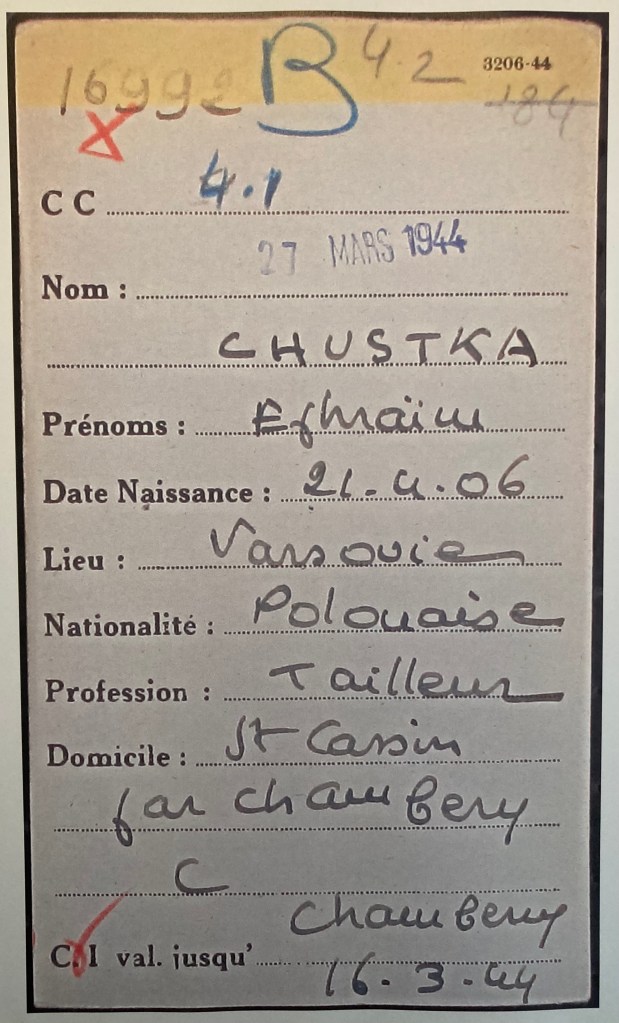 16992 B 4.2 3206-44
184
CC 4.1
27 MARS 1944
Nom :
CHUSTKA
Prénoms : Ephraïm
Date Naissance : 21.4.06
Lieu : Varsovie
Nationalité : Polonaise
Profession : Tailleur
Domicile : St Cassin
par Chambery
C
Chambery
C.I val. jusqu' 16.3.44